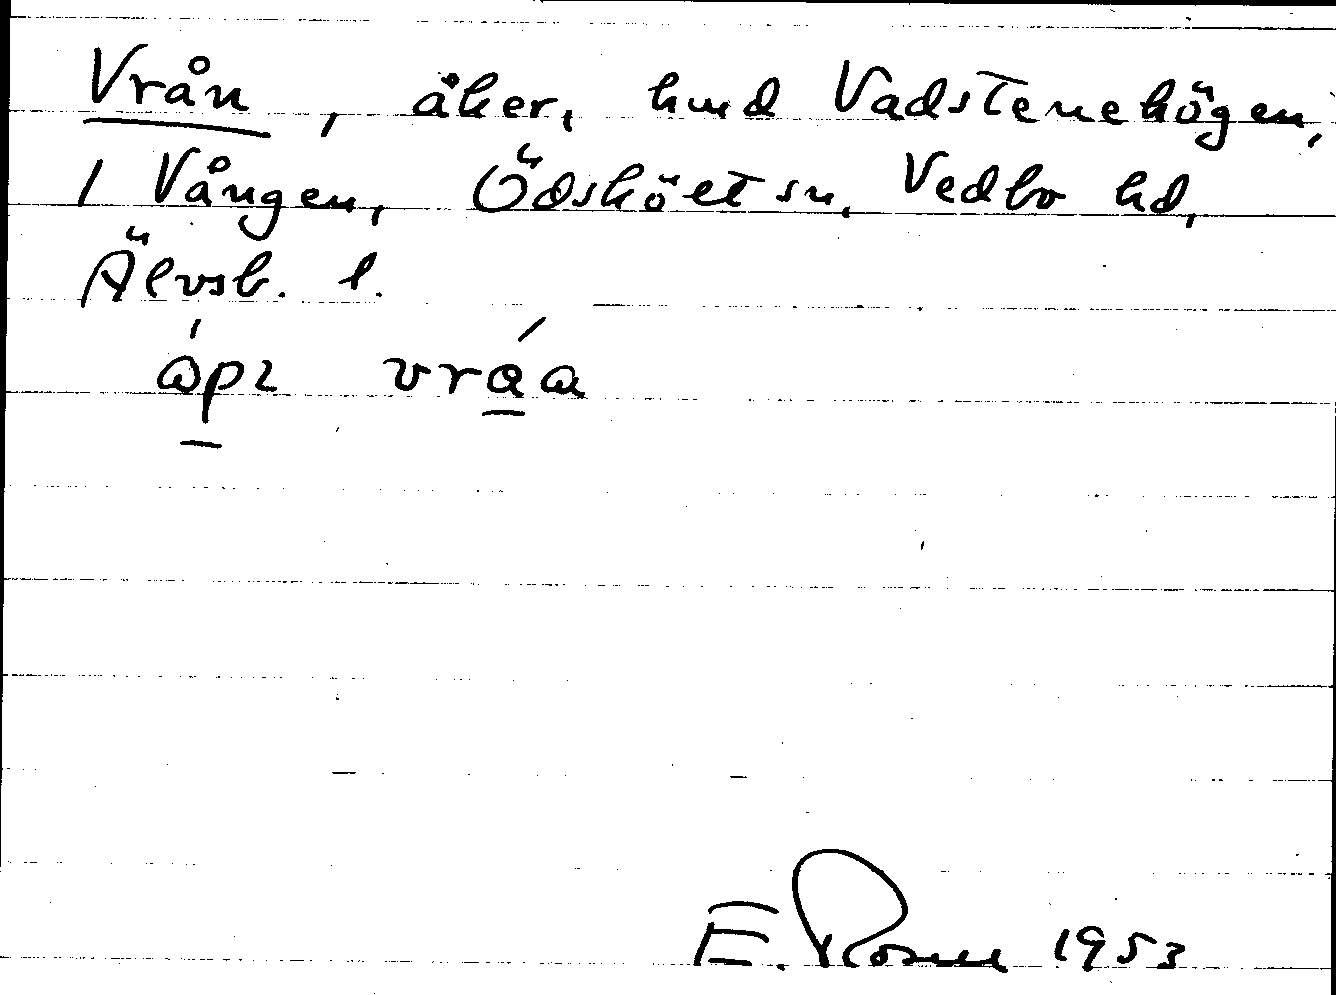 Vrån, åker, hmd Vadstenehögen,
1 Vången, Ödsköлt sn, Vedbo hd,
Älvsb. l.
vráa
E. Rosell 1953